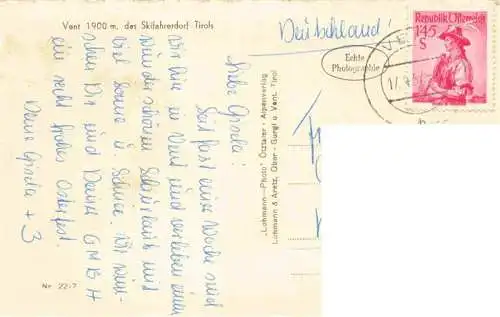 Vent 1900 m, das Skifahrerdorf Tirols
Deutschland!
Echte
Photographie
Republik Österreich
1·45
S
VE
17.
Liebe Gisela!
Seit fast einer Woche sind
wir hier in Vent und verleben einen
wunderschönen Skiurlaub mit
viel Sonne u. Schnee. Wir wün-
schen Dir und Deiner GMBH
ein recht frohes Osterfest.
Deine Gisela + 3
"Lohmann—Photo" Ötztaler - Alpenverlag
Lohmann & Aretz, Ober - Gurgl u. Vent. Tirol
Nr. 22-7